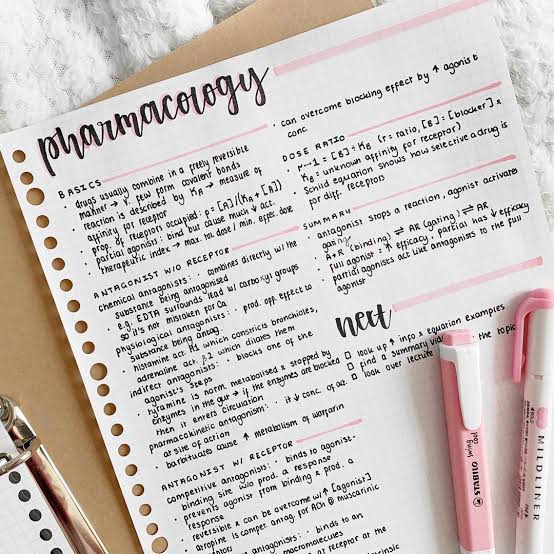 pharmacology
BASICS
· drugs usually combine in a freely reversible
manner → v few form covalent bonds
· reaction is described by KA → measure of
affinity for receptor
· prop. of receptors occupied: p = [A]/(KA + [A])
· partial agonists: bind but cause much ↓ act.
· therapeutic index → max tol. dose / min. effec. dose
ANTAGONIST W/O RECEPTOR
chemical antagonists: · combines directly w/ the
substance being antagonised
· e.g. EDTA surrounds lead w/ carboxyl groups
so it's not mistaken for Ca
physiological antagonists: · prod. opp. effect to
substance being antag.
· histamine act. H1 which constricts bronchioles,
adrenaline act. β2 which dilates them
indirect antagonists: · blocks one of the
agonist's steps
· tyramine is norm. metabolised & stopped by
enzymes in the gut → if the enzymes are blocked
then it enters circulation
pharmacokinetic antagonism: · it ↓ conc. of act.
at site of action
· barbiturates cause ↑ metabolism of warfarin
ANTAGONIST W/ RECEPTOR
competitive antagonists: · binds to agonist-
binding site w/o prod. a response
· prevents agonist from binding & prod. a
response
· reversible & can be overcome w/ ↑ [agonist]
· atropine is comper. antag. for ACh @ muscarinic
antagonists: · binds to an
macromolecules
receptor or at the
· can overcome blocking effect by ↑ agonist
conc
DOSE RATIO
· r-1 = [B] : KB (r = ratio, [B] = [blocker] &
KB = unknown affinity for receptor)
· Schild equation shows how selective a drug is
for diff. receptors
SUMMARY
· antagonist stops a reaction, agonist activates
A+R (binding) ⇌ AR (gating) ⇌ AR
· full agonist: ↑ efficacy, partial has ↓ efficacy
· partial agonists act like antagonists to the full
agonist
next
□ look up ↑ info & equation examples
□ find a summary the topic
□ look over
STABILO
swing cool
MILDLINER